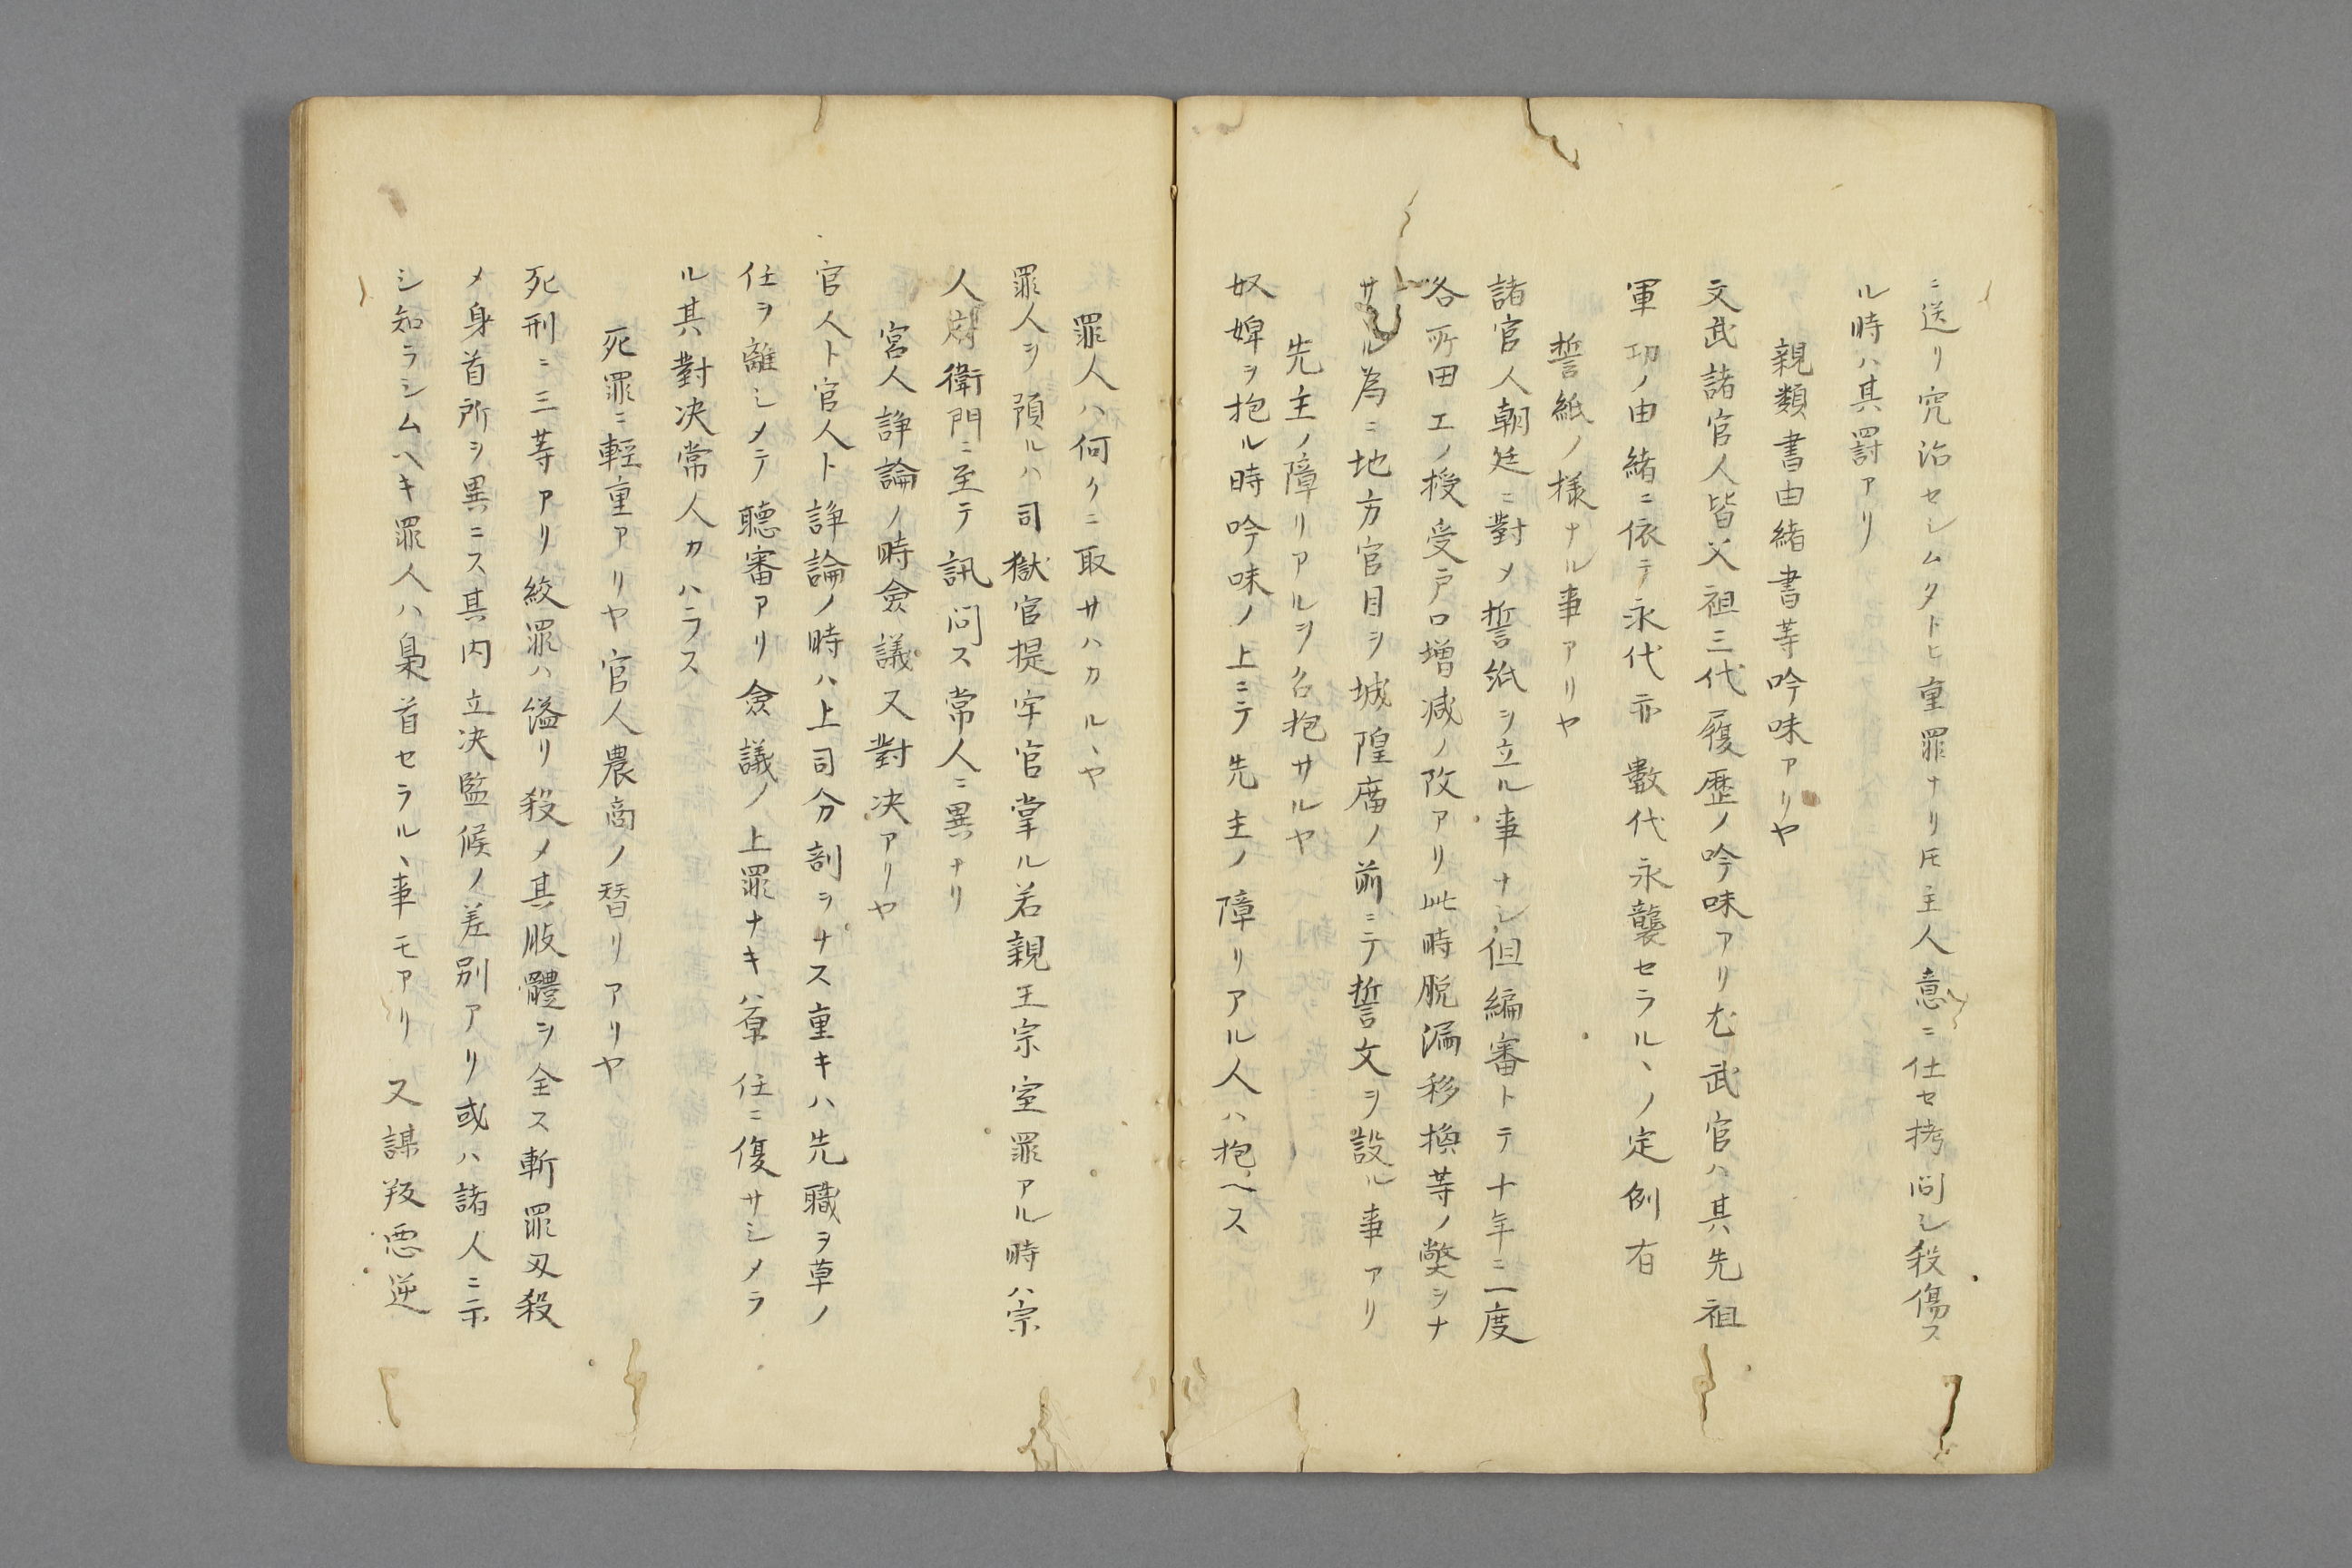 ニ送リ究治セシムタトヒ重罪ナリ𪜈主人意ニ仕セ拷問シ殺傷ス
ル時ハ其罸アリ
親類書由緒書等吟味アリヤ
文武諸官人皆父祖三代履歴ノ吟味アリ尤武官ハ其先祖
軍功ノ由緒ニ依テ永代亦數代永襲セラルヽノ定例有
誓紙ノ様ナル事アリヤ
諸官人朝廷ニ對メ誓紙ヲ立ル事ナシ但編審トテ十年ニ一度
各所田エノ授受戸口増减ノ改アリ此時脱漏移換等ノ弊ヲナ
サル為ニ地方官目ヲ城隍庿ノ前ニテ誓文ヲ設ル事アリ
先主ノ障リアルヲ名抱サルヤ
奴婢ヲ抱ル時吟味ノ上ニテ先主ノ障リアル人ハ抱ヘス
罪人ハ何クニ取サハカルヽヤ
罪人ヲ預ルハ司獄官提牢官掌ル若親王宗室罪アル時ハ宗
人府衛門ニ至テ訊問ス常人ニ異ナリ
宮人諍論ノ時僉議又對决アリヤ
官人ト官人ト諍論ノ時ハ上司分剖ヲナス重キハ先職ヲ草ノ
任ヲ離シメテ聴審アリ僉議ノ上罪ナキハ原任ニ復サシメラ
ル其對决常人カハラス
死罪ニ輕重アリヤ官人農商ノ替リアリヤ
死刑ニ三等アリ絞罪ハ縊リ殺メ其肢體ヲ全ス斬罪刄殺
メ身首所ヲ異ニス其内立决監候ノ差別アリ或ハ諸人ニ示
シ知ラシムヘキ罪人ハ梟首セラルヽ事モアリ又謀叛悪逆